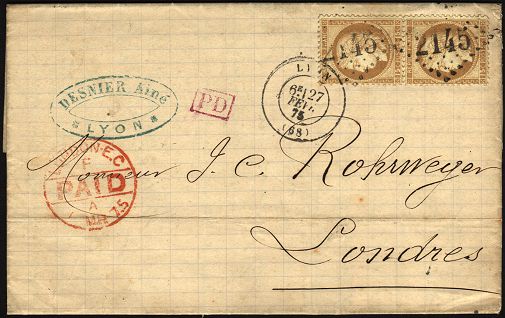 2145 2145
LYON
6E 27
FEVR.
75
(68)
DESNIER Aîné
LYON
PD
LONDON-E.C
PAID
A
MR 75
Monsieur J. C. Rohrweger
Londres